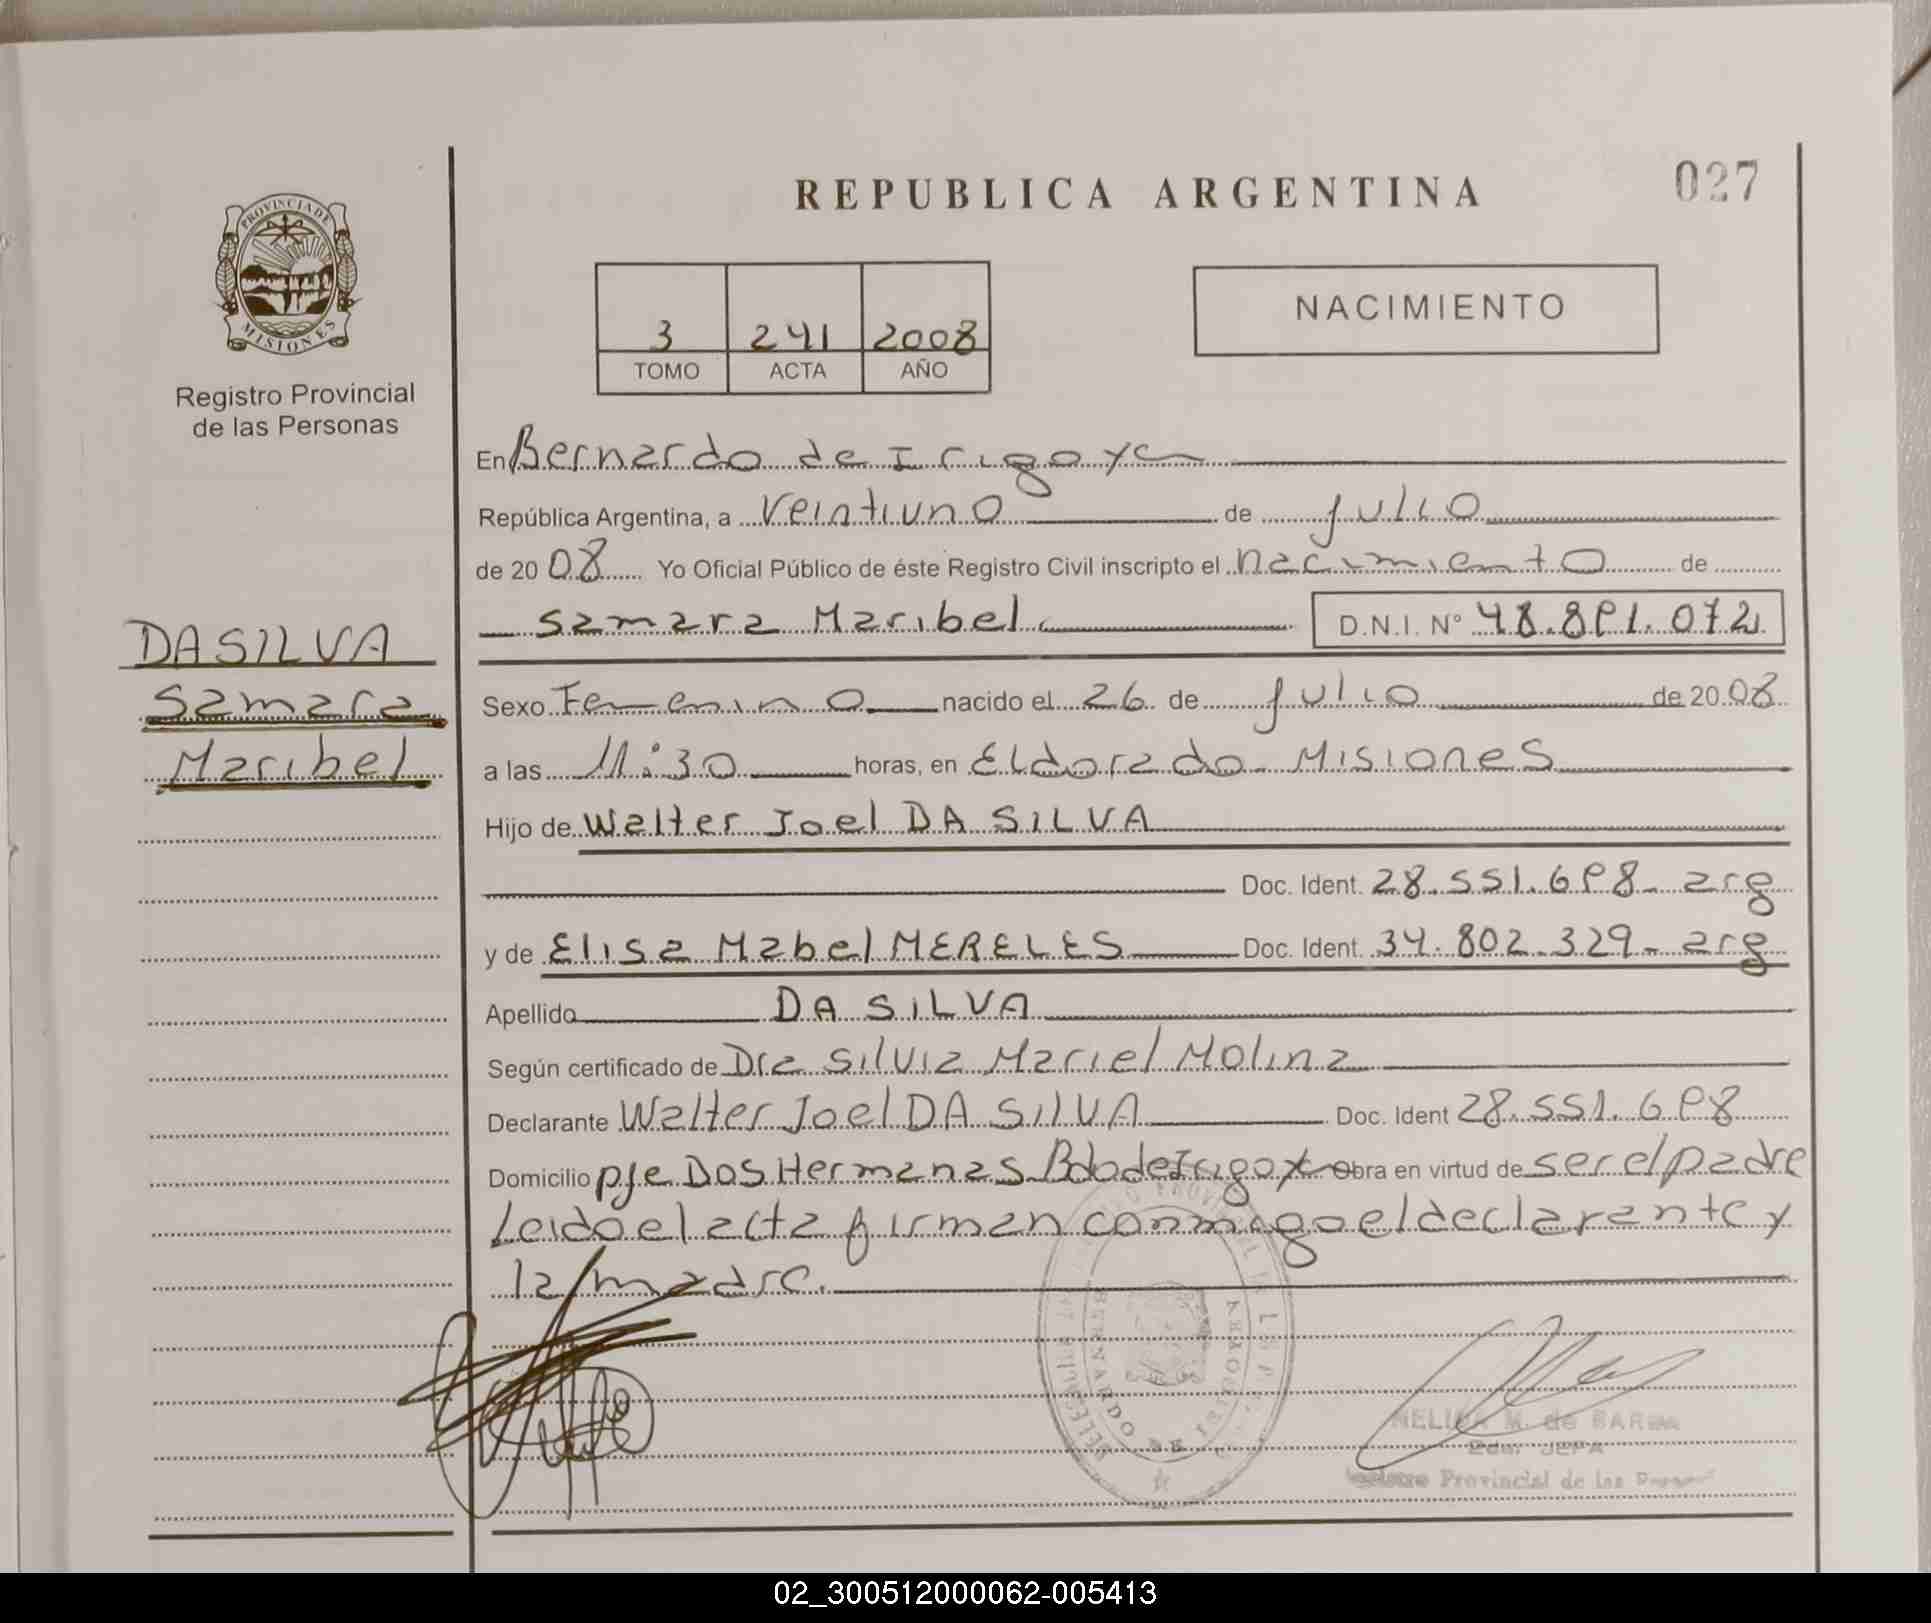 REPUBLICA ARGENTINA
027
PROVINCIA DE
MISIONES
Registro Provincial
de las Personas
3 241 2008
TOMO ACTA AÑO
NACIMIENTO
En Bernardo de Irigoyen
República Argentina, a veintiuno de julio
de 2008 Yo Oficial Público de éste Registro Civil inscripto el nacimiento de
Samara Maribel D.N.I. N° 48.891.072
DA SILVA
Samara
Maribel
Sexo Femenino nacido el 26 de julio de 2008
a las 11:30 horas, en Eldorado - Misiones
Hijo de Walter Joel DA SILVA
Doc. Ident. 28.551.698- arg
y de Elisa Mabel MERELES Doc. Ident. 34.802.329- arg
Apellido DA SILVA
Según certificado de Dra Silvia Mariel Molina
Declarante Walter Joel DA SILVA Doc. Ident 28.551.698
Domicilio pje Dos Hermanas Bdo de Irigoy Obra en virtud de ser el padre
Leido el acta firman conmigo el declarante y
la madre.
BERNARDO DE
NELIDA M. de
JEFA
Provincial de las
02_300512000062-005413